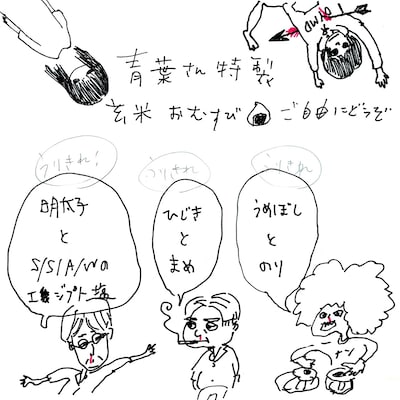 青葉さん特製
玄米 おむすび ご自由にどうぞ
うりきれ!
うりきれ
うりきれ
明太子
と
S/S/A/Wの
ひじき
と
まめ
うめぼし
と
のり